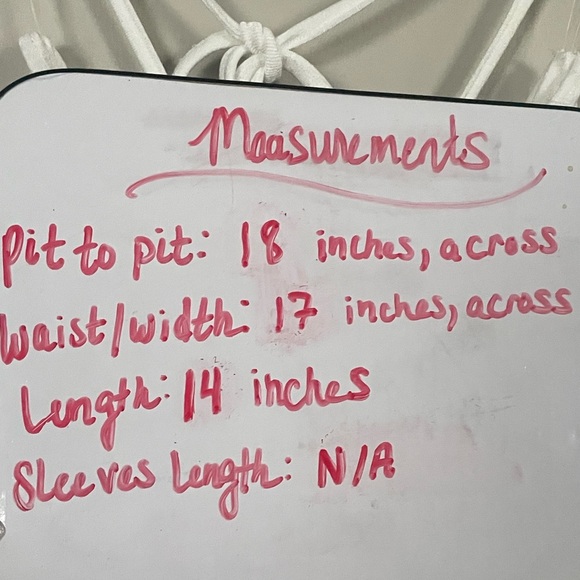 Measurements
Pit to pit: 18 inches, across
Waist/width: 17 inches, across
Length: 14 inches
Sleeves Length: N/A